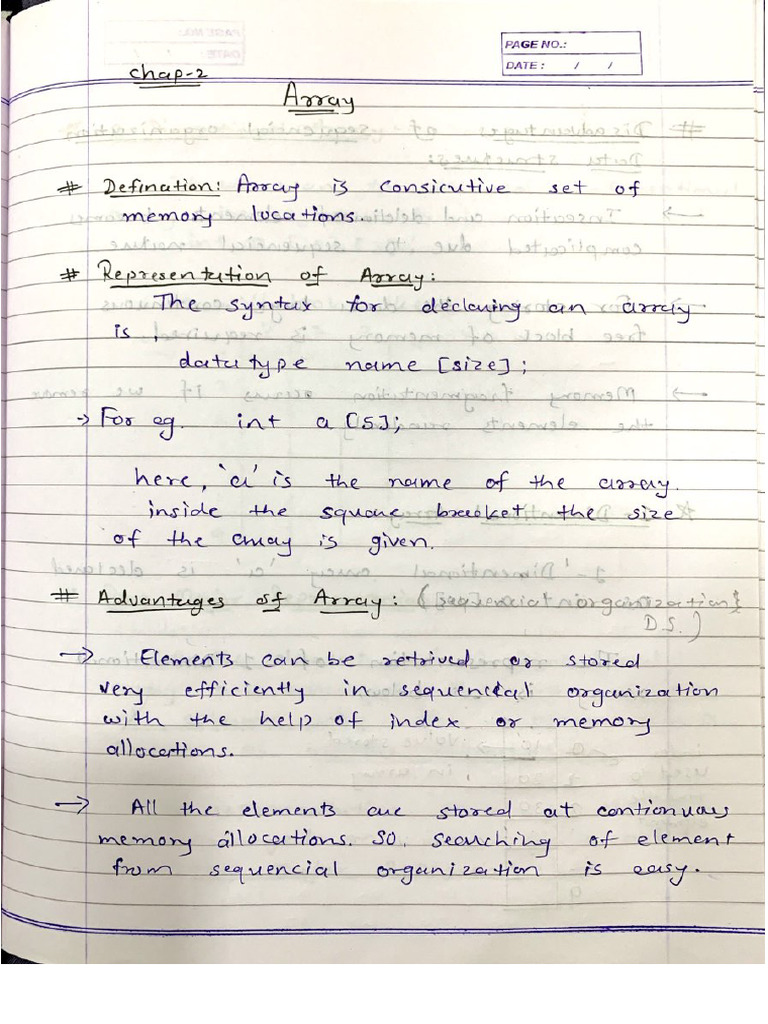 PAGE NO.:
DATE : / /
Chap-2
Array
# Defination: Array is consicutive set of
memory locations.
# Representation of Array:
The syntax for declaring an array
is,
data type name [size];
→ For eg. int a [5];
here, 'a' is the name of the array.
inside the square bracket the size
of the array is given.
# Advantages of Array: (sequencial organization
D.S.)
→ Elements can be retrived or stored
very efficiently in sequencial organization
with the help of index or memory
allocations.
→ All the elements are stored at contionuous
memory allocations. SO, searching of element
from sequencial organization is easy.